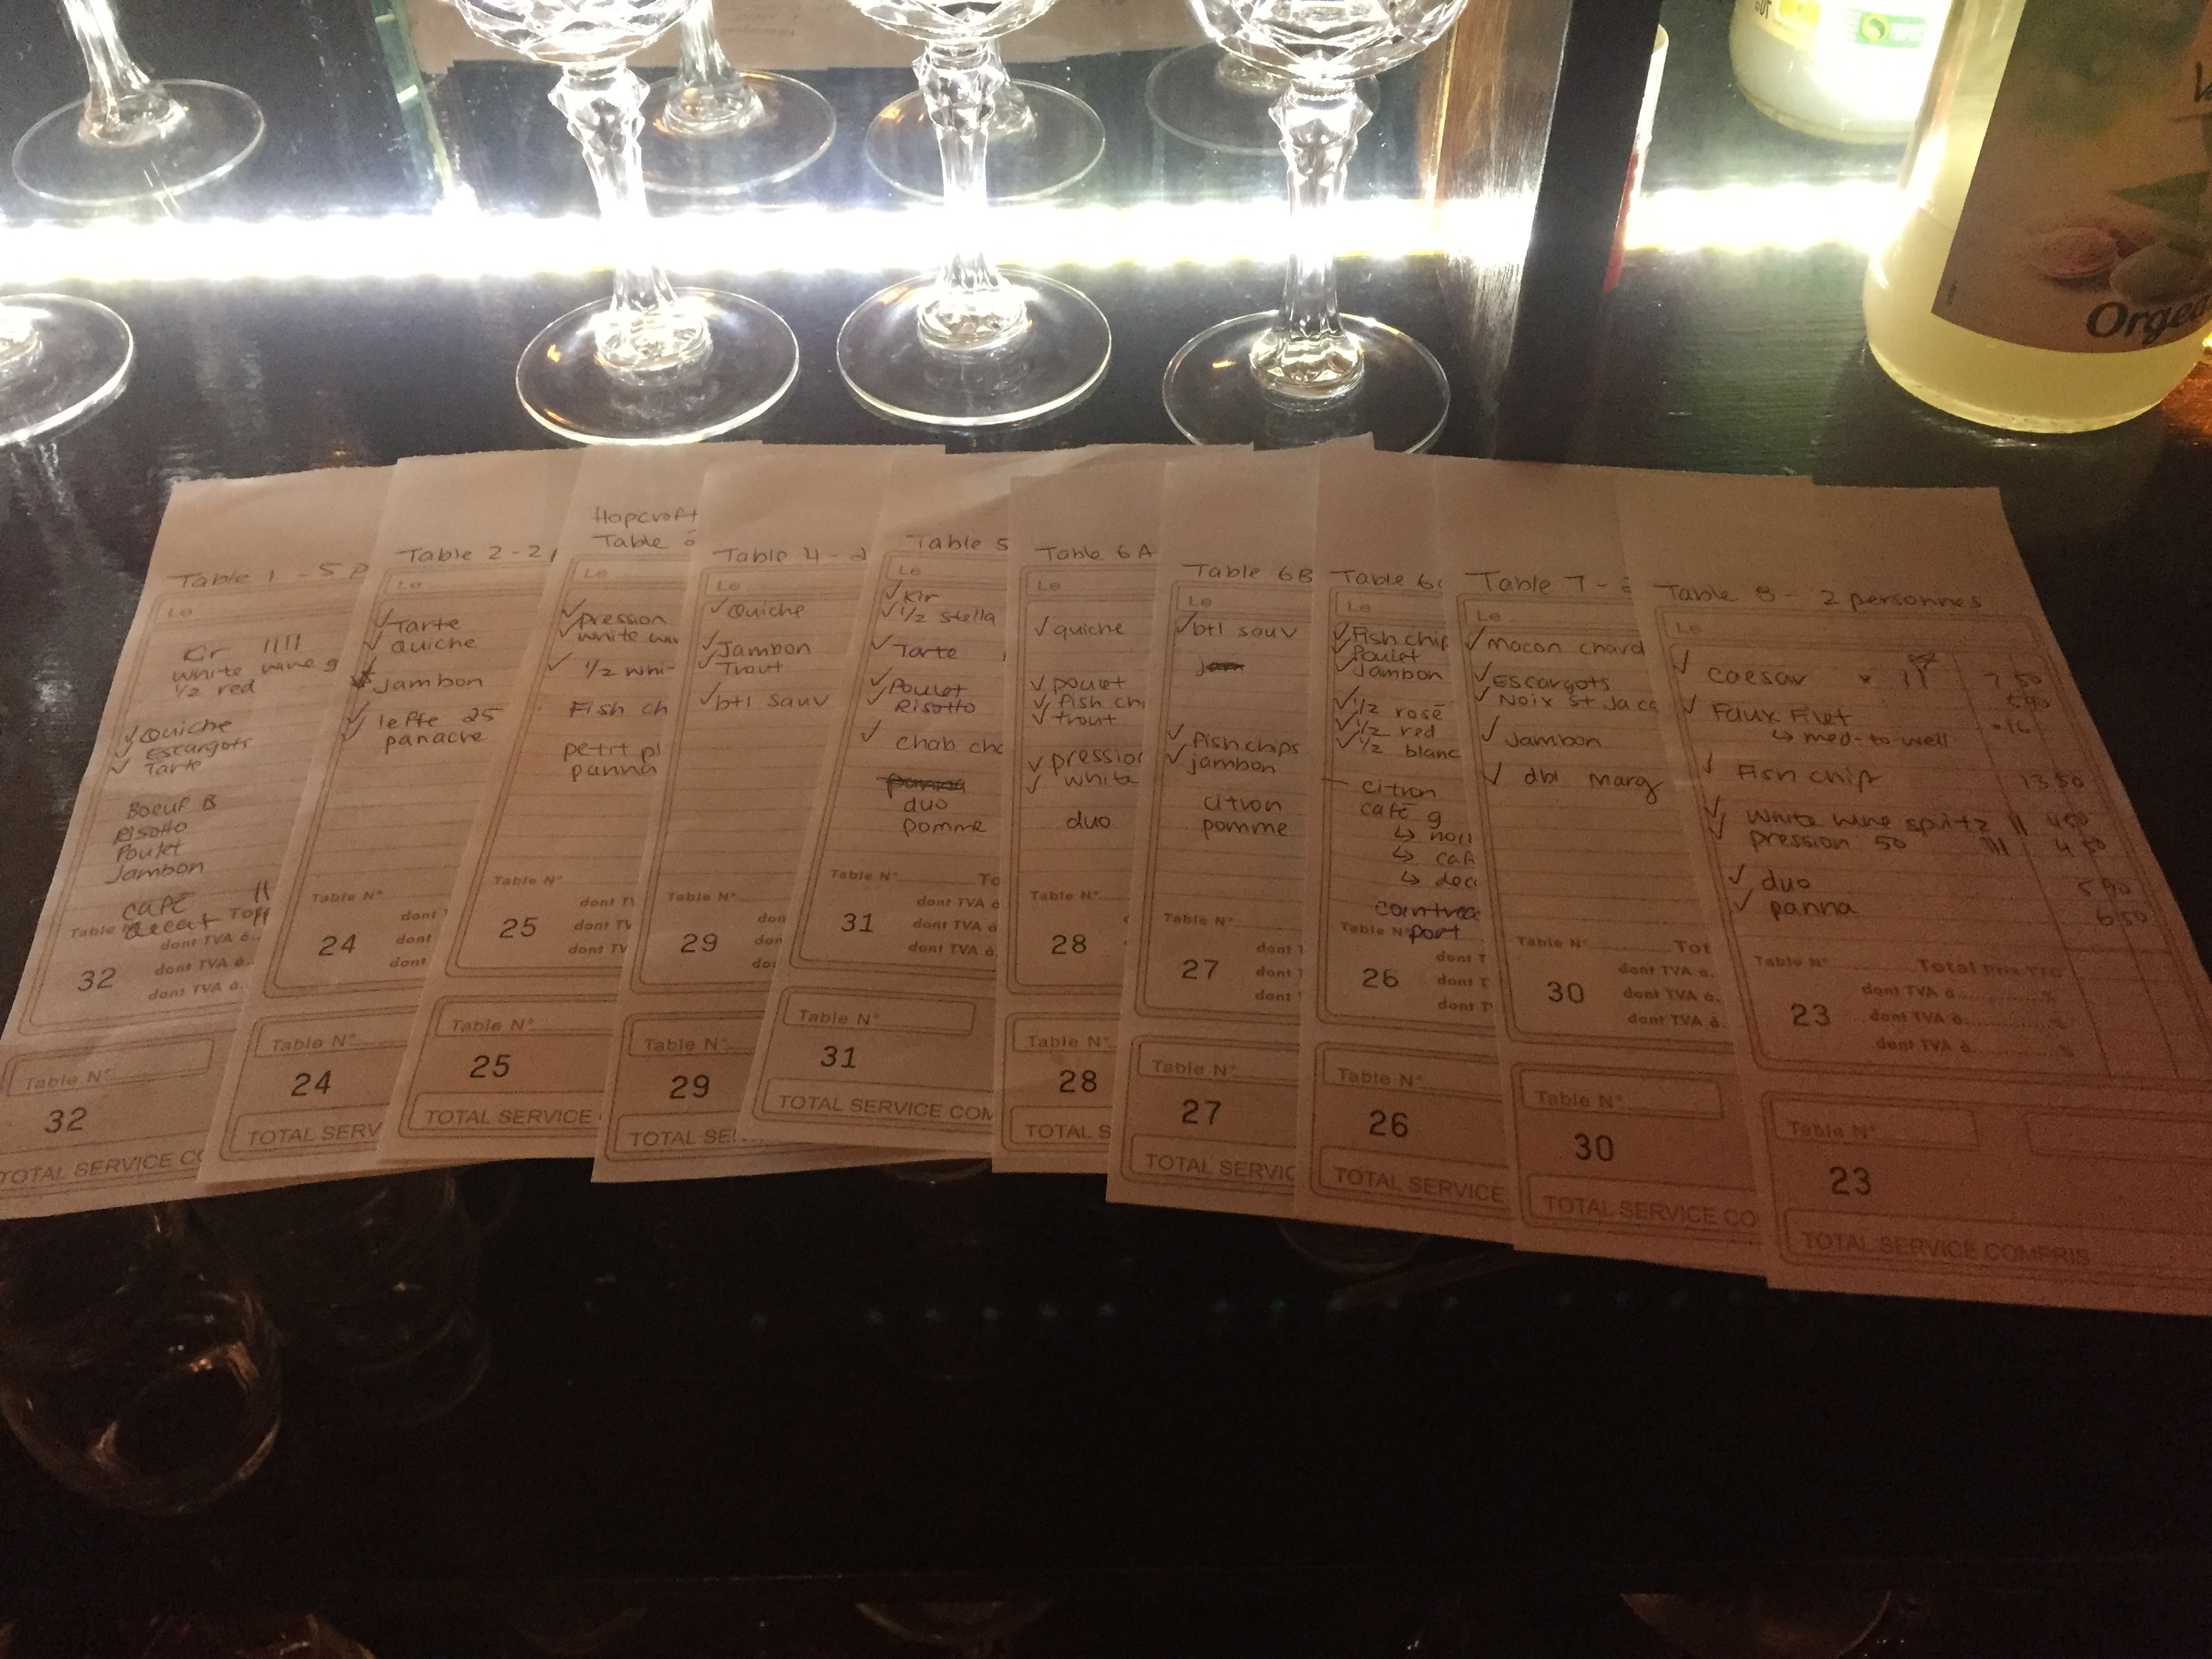 Orgea
Table 1 - 5 p
Le
Kir IIII
white wine g
1/2 red
✓Quiche
✓Escargots
✓ Tarte
Boeuf B
Risotto
Poulet
Jambon
café II
decaf
Table N°
dont TVA à..
dont TVA à.
dont TVA à.
32
Table N°
32
TOTAL SERVICE CO
Table 2 - 2
Le
✓Tarte
✓Quiche
Jambon
✓leffe 25
✓panache
Table N°
dont
dont
dont
24
Table N°
24
TOTAL SERV
Hopcroft
Table
Le
✓pression
✓white win
✓ 1/2 whi
Fish ch
petit pl
panna
Table N°
dont TV
dont TV
dont TV
25
Table N°
25
TOTAL SERVICE
Table 4 -
Le
✓Quiche
✓Jambon
✓Trout
✓btl sauv
Table N°
don
don
do
29
Table N°
29
TOTAL SE
Table 5
Le
✓Kir
✓1/2 stella
✓Tarte
✓Poulet
✓Risotto
✓ chab cho
panna
duo
pomme
Table N° To
dont TVA à
dont TVA à
dont TVA à
31
Table N°
31
TOTAL SERVICE COM
Table 6A
Le
✓quiche
✓poulet
✓fish chi
✓trout
✓pressio
✓ white
duo
Table N°
28
Table N°
28
TOTAL S
Table 6B
Le
✓btl sauv
jam
✓fish chips
✓jambon
citron
pomme
Table N°
dont T
dont T
dont T
27
Table N°
27
TOTAL SERVIC
Table 6
Le
✓Fish chip
✓Poulet
✓Jambon
✓1/2 rosé
✓1/2 red
✓1/2 blanc
citron
café g
↳ noi
↳ caf
↳ dec
cointrea
port
Table N°
dont T
dont T
dont T
26
Table N°
26
TOTAL SERVICE
Table 7 -
Le
✓macon chard
✓Escargots
✓Noix St Jacq
✓Jambon
✓ dbl marg
Table N° Tot
dont TVA à.
dont TVA à.
dont TVA à.
30
Table N°
30
TOTAL SERVICE CO
Table 8 - 2 personnes
Le
✓ Caesar 7 50
✓ Faux Filet 16
↳ med-to-well
✓ Fish chip 13 50
✓ white wine spritz II
✓ pression 50 III
✓ duo
✓ panna 6 50
Table N° Total Prix TTC
dont TVA à %
dont TVA à %
dont TVA à %
23
Table N°
23
TOTAL SERVICE COMPRIS